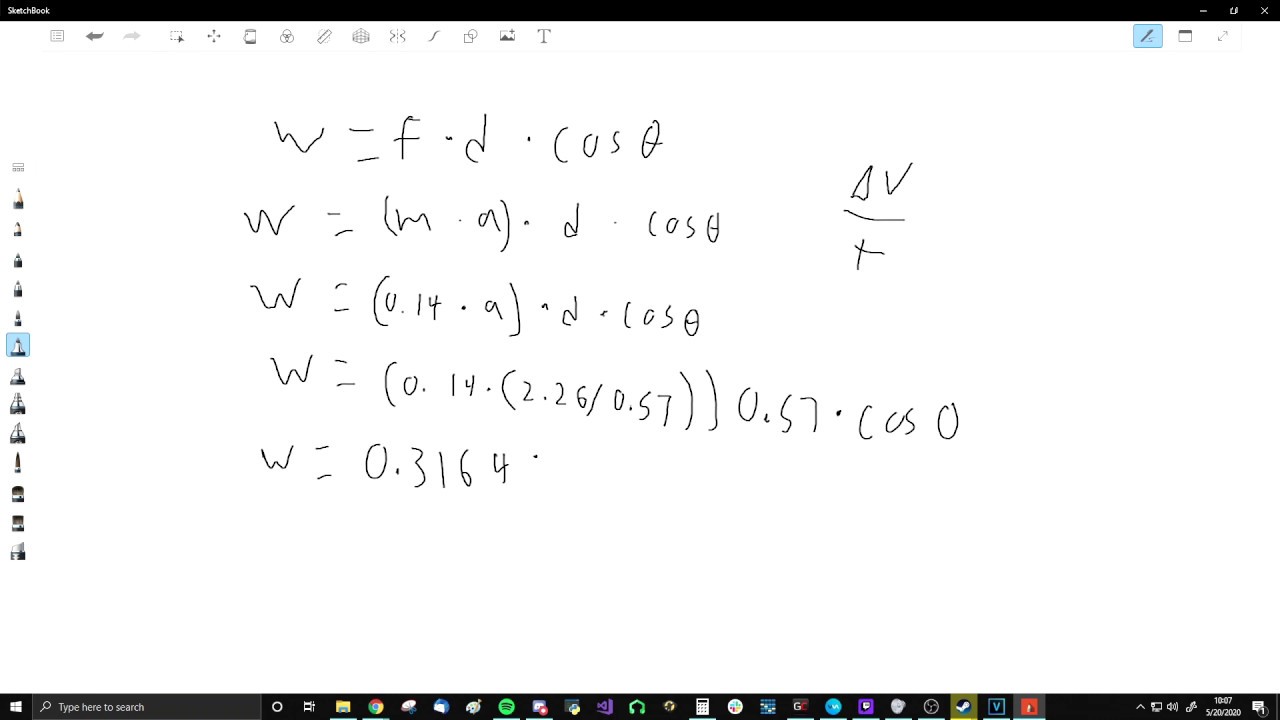 SketchBook
W = f · d · cos θ
ΔV
W = (m · a) · d · cosθ
t
W = (0.14 · a) · d · cosθ
W = (0.14·(2.26/0.57)) 0.57 · cos θ
W = 0.3164 ·
Type here to search
10:07
5/20/2020